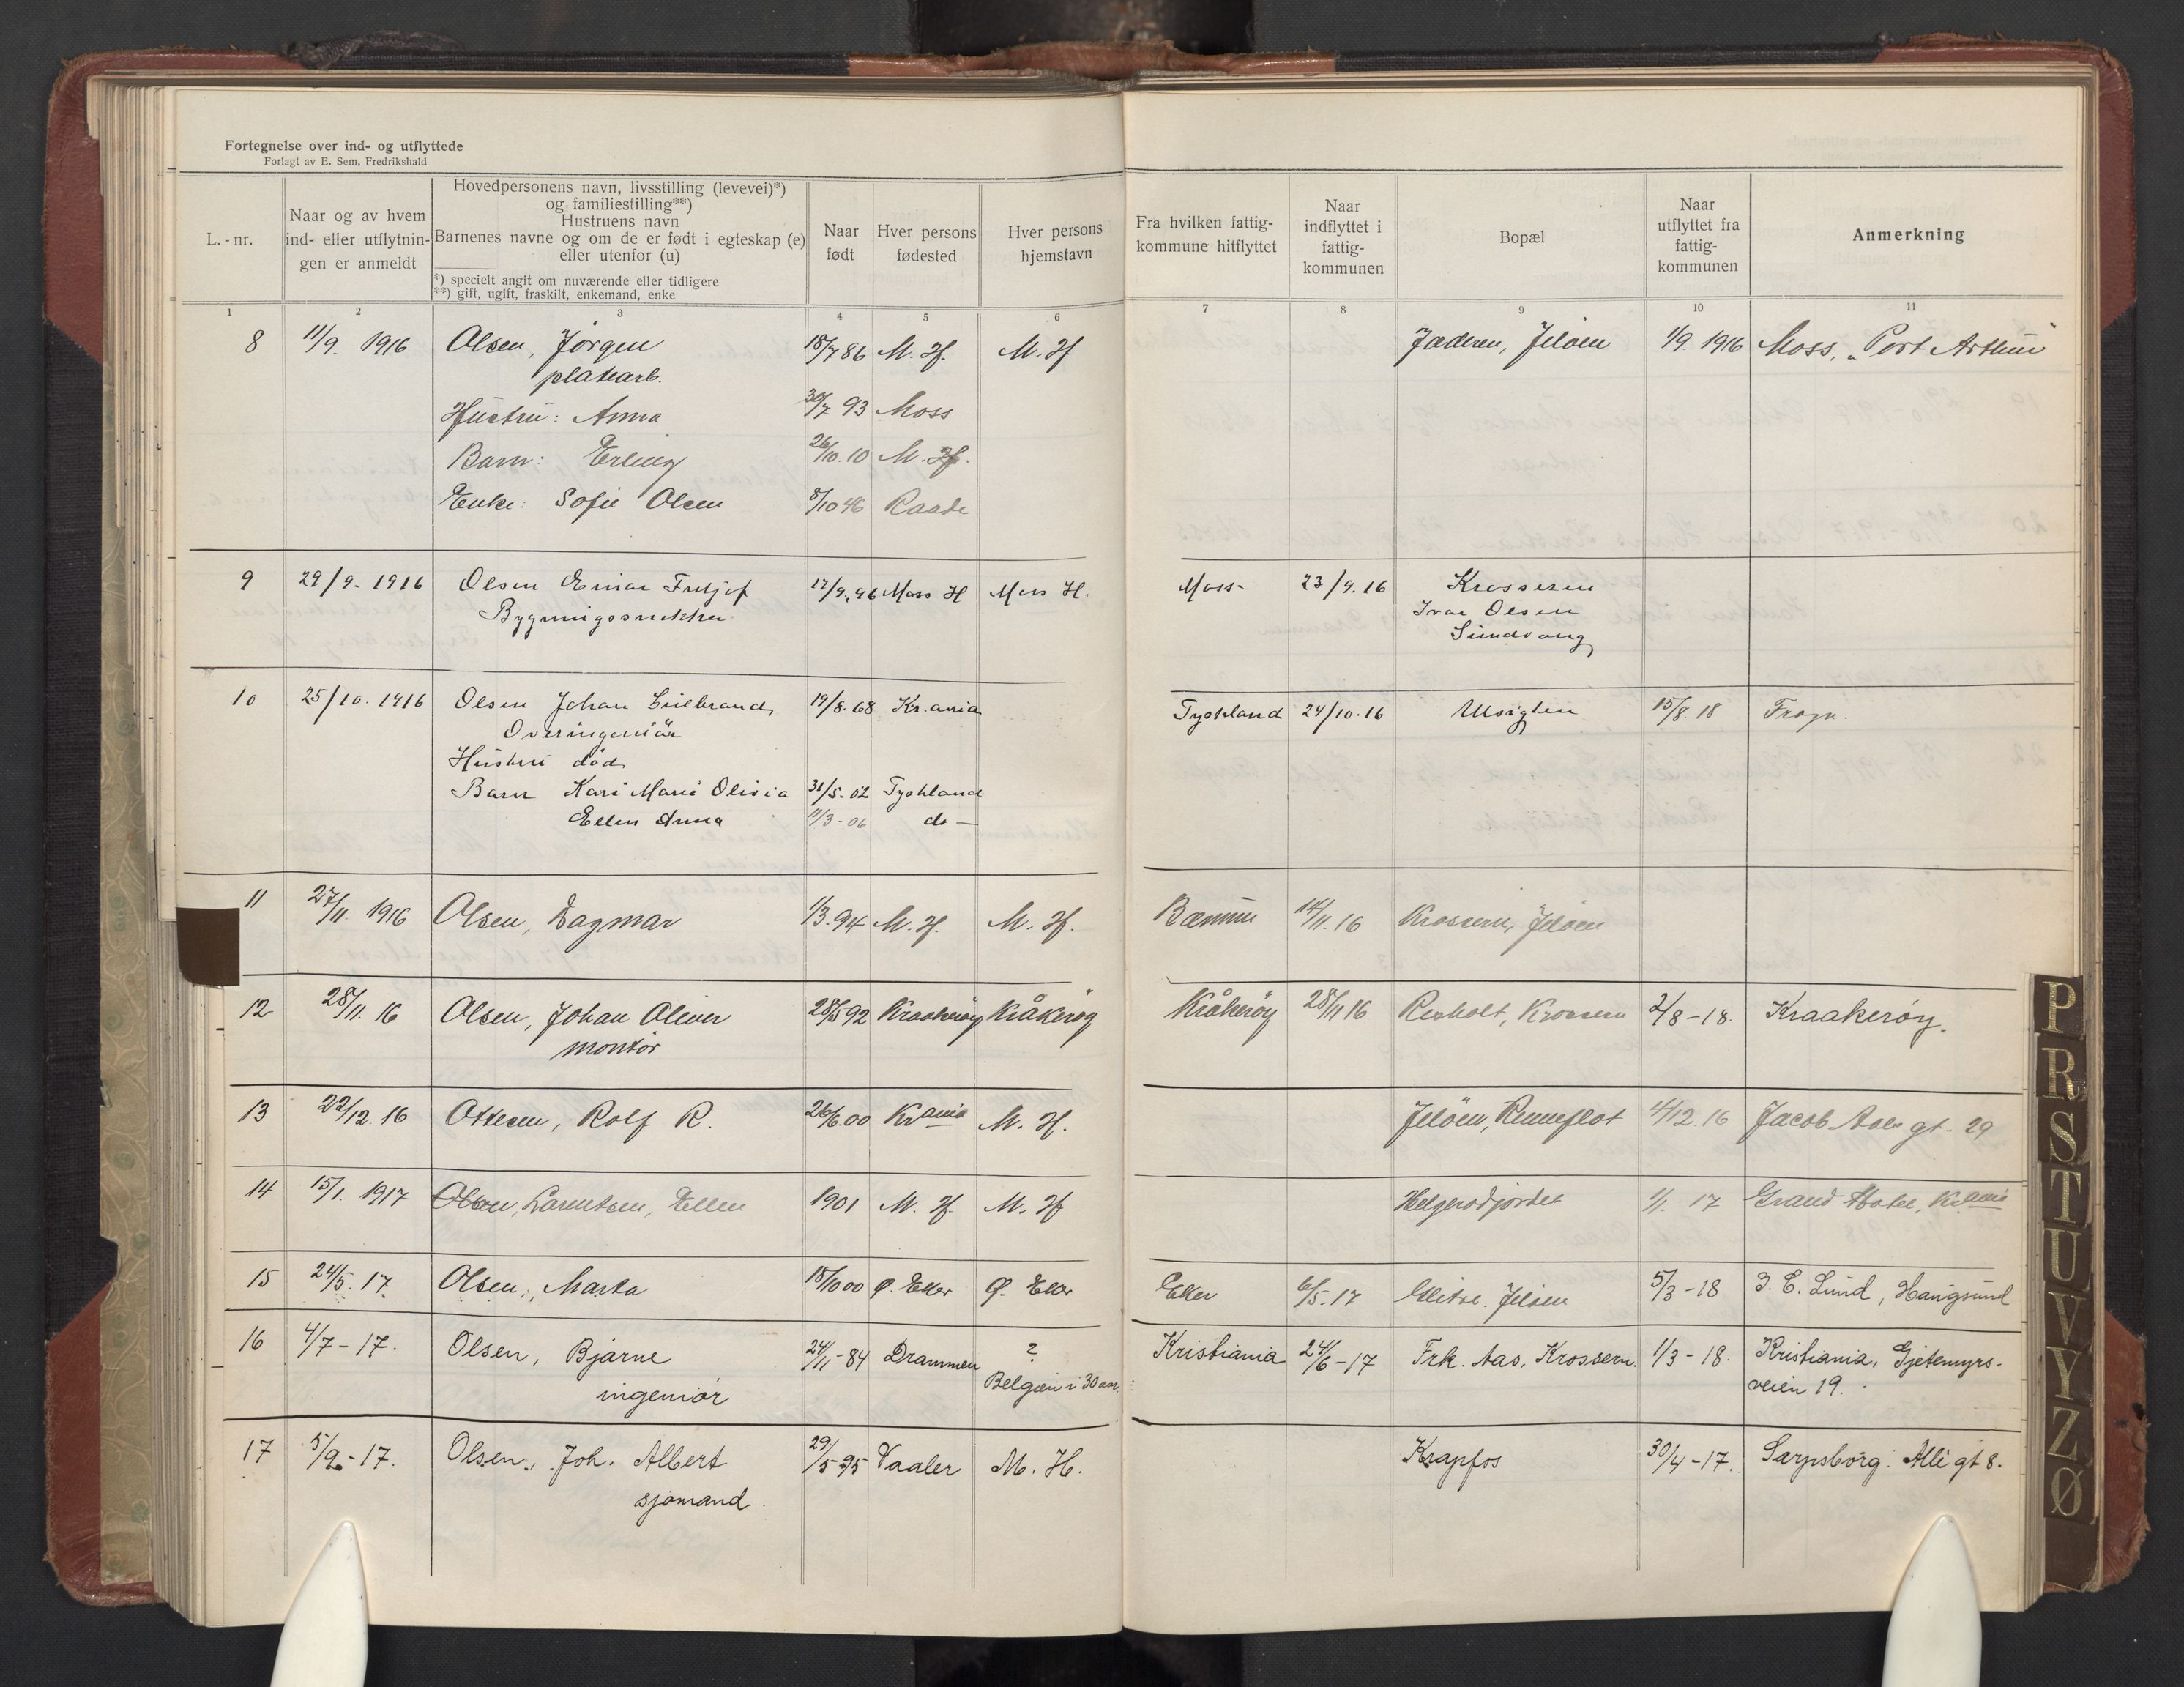 Fortegnelse over ind- og utflyttede
Forlagt av E. Sem, Fredrikshald
L.-nr.
Naar og av hvem
ind- eller utflytnin-
gen er anmeldt
Hovedpersonens navn, livsstilling (levevei)*)
og familiestilling**)
Hustruens navn
Barnenes navne og om de er født i egteskap (e)
eller utenfor (u)
*) specielt angit om nuværende eller tidligere
**) gift, ugift, fraskilt, enkemand, enke
Naar
født
Hver persons
fødested
Hver persons
hjemstavn
Fra hvilken fattig-
kommune hitflyttet
Naar
indflyttet i
fattig-
kommunen
Bopæl
Naar
utflyttet fra
fattig-
kommunen
Anmerkning
1 2 3 4 5 6 7 8 9 10 11
8 11/9. 1916 Olsen, Jörgen 18/7 86 M. H. M. H Jæderen, Jelöen 1/9 1916 Moss, "Port Arthur"
platearb.
Hustru: Anna 30/7 93 Moss
Barn: Erling 26/10. 10 M. H.
Enke: Sofie Olsen 8/10 46 Raade
9 29/9. 1916 Olsen Einar Fritjof 17/9. 96 Moss H Moss H. Moss 23/9. 16 Krosseren
Bygningssnekker Ivar Olsen
Sundvang
10 25/10. 1916 Olsen Johan 19/8. 68 Kr.ania Tyskland 24/10. 16 Utsigten 15/8. 18 Frogn.
Overingeniör
Hustru död
Barn Kari Marie Olivia 31/5. 02 Tyskland
Ellen Anna 11/3 - 06 do —
11 27/11. 1916 Olsen, Dagmar 1/3. 94 M. H. M. H. Bærum 14/11. 16 Krossern, Jelöen
12 28/11. 16 Olsen, Johan Oliver 28/5 92 Kraakeröy Kråkeröy Kråkeröy 28/11 16 Krossern 2/8 - 18. Kraakeröy.
montör
13 22/12. 16 Ottesen, Rolf R. 26/6. 00 Krania M. H. Jelöen, Renneflot 4/12. 16 Jacob Aals gt. 29
14 15/1. 1917 Olsen, Larentsen, Ellen 1901 M. H. M. H Helgerødjordet 1/1. 17 Grand Hotel, Krania
15 24/5. 17. Olsen, Marta 15/10 00 Ø. Eker Ø. Eker Eker 6/5. 17 Glitre. Jelöen 5/3 - 18 J. E. Lund, Haugsund
16 4/7 - 17. Olsen, Bjarne 24/11 - 84 Drammen ? Kristiania 24/6 - 17 Frk. Aas, Krossern. 1/3 - 18. Kristiania, Gjetemyrs-
ingeniør Belgien i 30 aar. veien 19.
17 5/9. - 17. Olsen, Joh. Albert 29/5 - 95 Vaaler M. H. Krapfos 30/4 - 17. Sarpsborg. Allé gt 8.
sjømand.
P
R
S
T
U
V
Y
Z
Ø